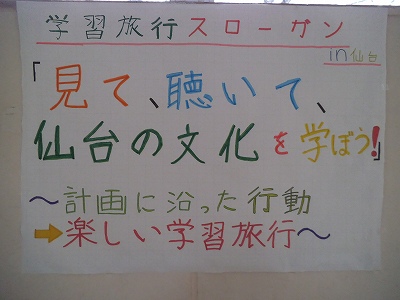 学習旅行スローガン
in仙台
「見て、聴いて、
仙台の文化を学ぼう!」
~計画に沿った行動
➡楽しい学習旅行~